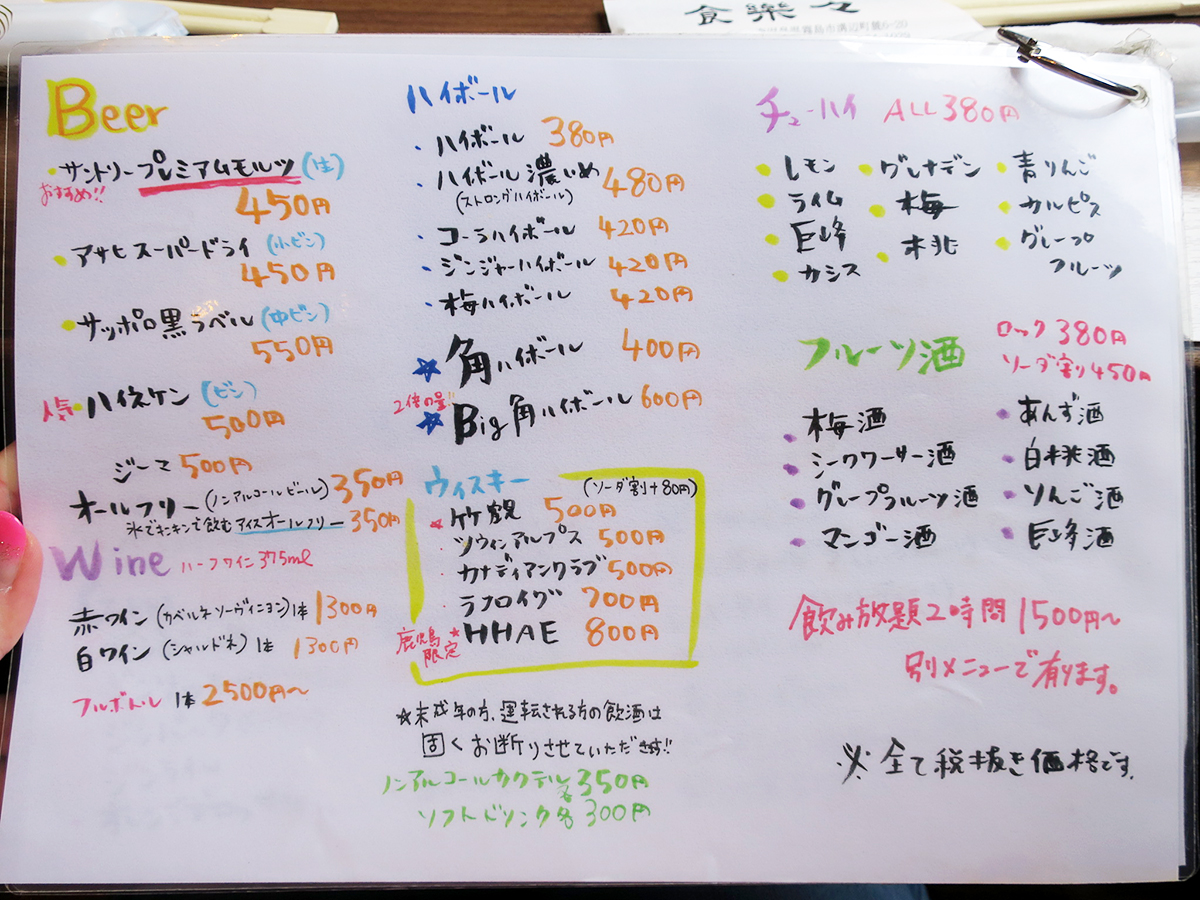 食樂々
Beer
・サントリープレミアムモルツ(生)
おすすめ!!
450円
・アサヒスーパードライ(小ビン)
450円
・サッポロ黒ラベル(中ビン)
550円
人気・ハイネケン(ビン)
500円
ジーマ500円
オールフリー(ノンアルコールビール)350円
氷でキンキンで飲むアイスオールフリー350円
Wine ハーフワイン375ml
赤ワイン(カベルネソーヴィニヨン)1本1300円
白ワイン(シャルドネ)1本1300円
フルボトル1本2500円〜
ハイボール
・ハイボール380円
・ハイボール濃いめ480円
(ストロングハイボール)
・コーラハイボール420円
・ジンジャーハイボール420円
・梅ハイボール420円
★角ハイボール400円
2倍の量!!
★Big角ハイボール600円
ウィスキー(ソーダ割+80円)
★竹鶴500円
・ツウィンアルプス500円
・カナディアンクラブ500円
・ラフロイグ700円
鹿児島限定★HHAE 800円
☆未成年の方、運転される方の飲酒は
固くお断りさせていただきます!!
ノンアルコールカクテル各350円
ソフトドリンク各300円
チューハイ ALL380円
・レモン ・グレナデン ・青りんご
・ライム ・梅 ・カルピス
・巨峰 ・木兆 ・グレープフルーツ
・カシス
フルーツ酒 ロック380円
ソーダ割り450円
・梅酒 ・あんず酒
・シークワーサー酒 ・白桃酒
・グレープフルーツ酒 ・りんご酒
・マンゴー酒 ・巨峰酒
飲み放題2時間1500円〜
別メニューで有ります。
※全て税抜き価格です。